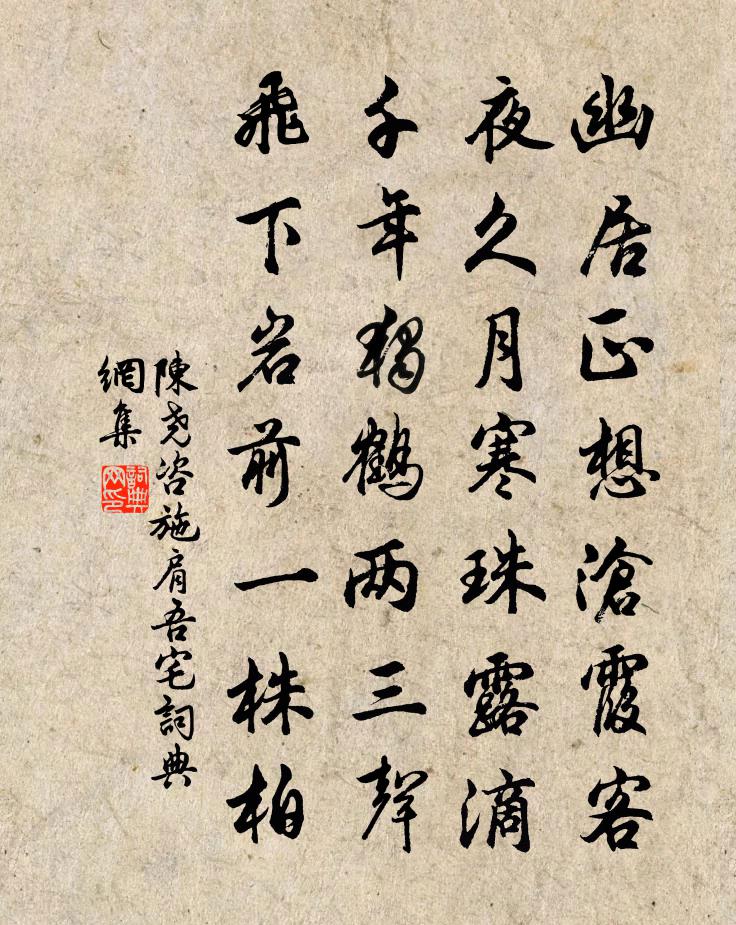 幽居正想滄霞客
夜久月寒珠露滴
千年獨鶴两三聲
飛下岩前一株柏
陳尧咨施肩吾宅詞典
網集
詞典
网印